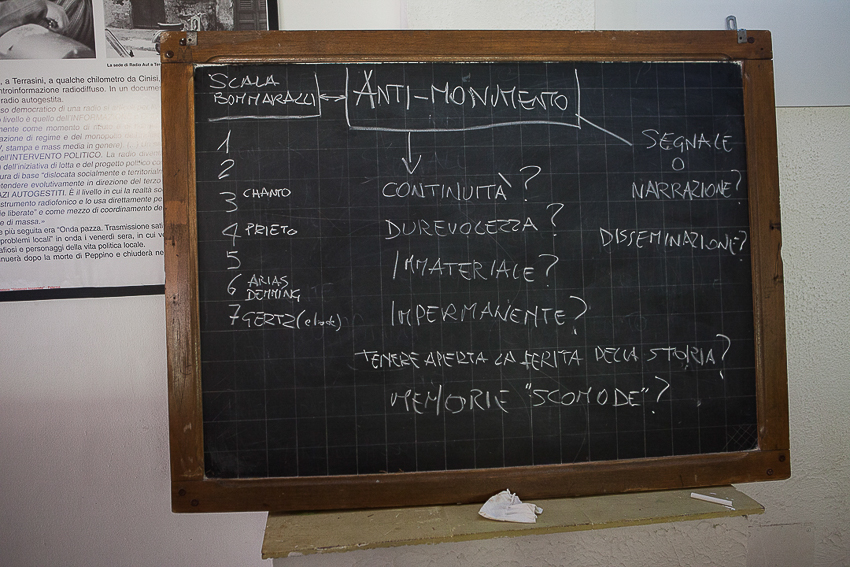 La sede di Radio Aut a Ter
, a Terrasini, a qualche chilometro da Cinisi,
ntroinformazione radiodiffuso. In un docume
radio autogestita.
so democratico di una radio
livello è quello dell'INFOR
mente come momento di
azione di regime e del monopolio
V, stampa e mass media in genere).
ell'INTERVENTO POLITICO. La radio diven
dell'iniziativa di lotta e del progetto politico co
ura di base "dislocata socialmente e territorial
tendere evolutivamente in direzione del terzo
AZI AUTOGESTITI. È il livello in cui la realtà so
strumento radiofonico e lo usa direttamente p
e liberate" e come mezzo di coordinamento de
e di massa.»
e più seguita era "Onda pazza. Trasmissione sati
problemi locali" in onda i venerdì sera, in cui v
afiosi e personaggi della vita politica locale.
nuerà dopo la morte di Peppino e chiuderà ne
SCALA
BOMMARALLI
ANTI-MONUMENTO
SEGNALE
O
NARRAZIONE?
DISSEMINAZIONE?
1
2
3 CHANTO
4 PRIETO
5
6 ARIAS
DEMMING
7 GERTZ (elode)
CONTINUITÀ?
DUREVOLEZZA?
IMMATERIALE?
IMPERMANENTE?
TENERE APERTA LA FERITA DELLA STORIA?
MEMORIE "SCOMODE"?